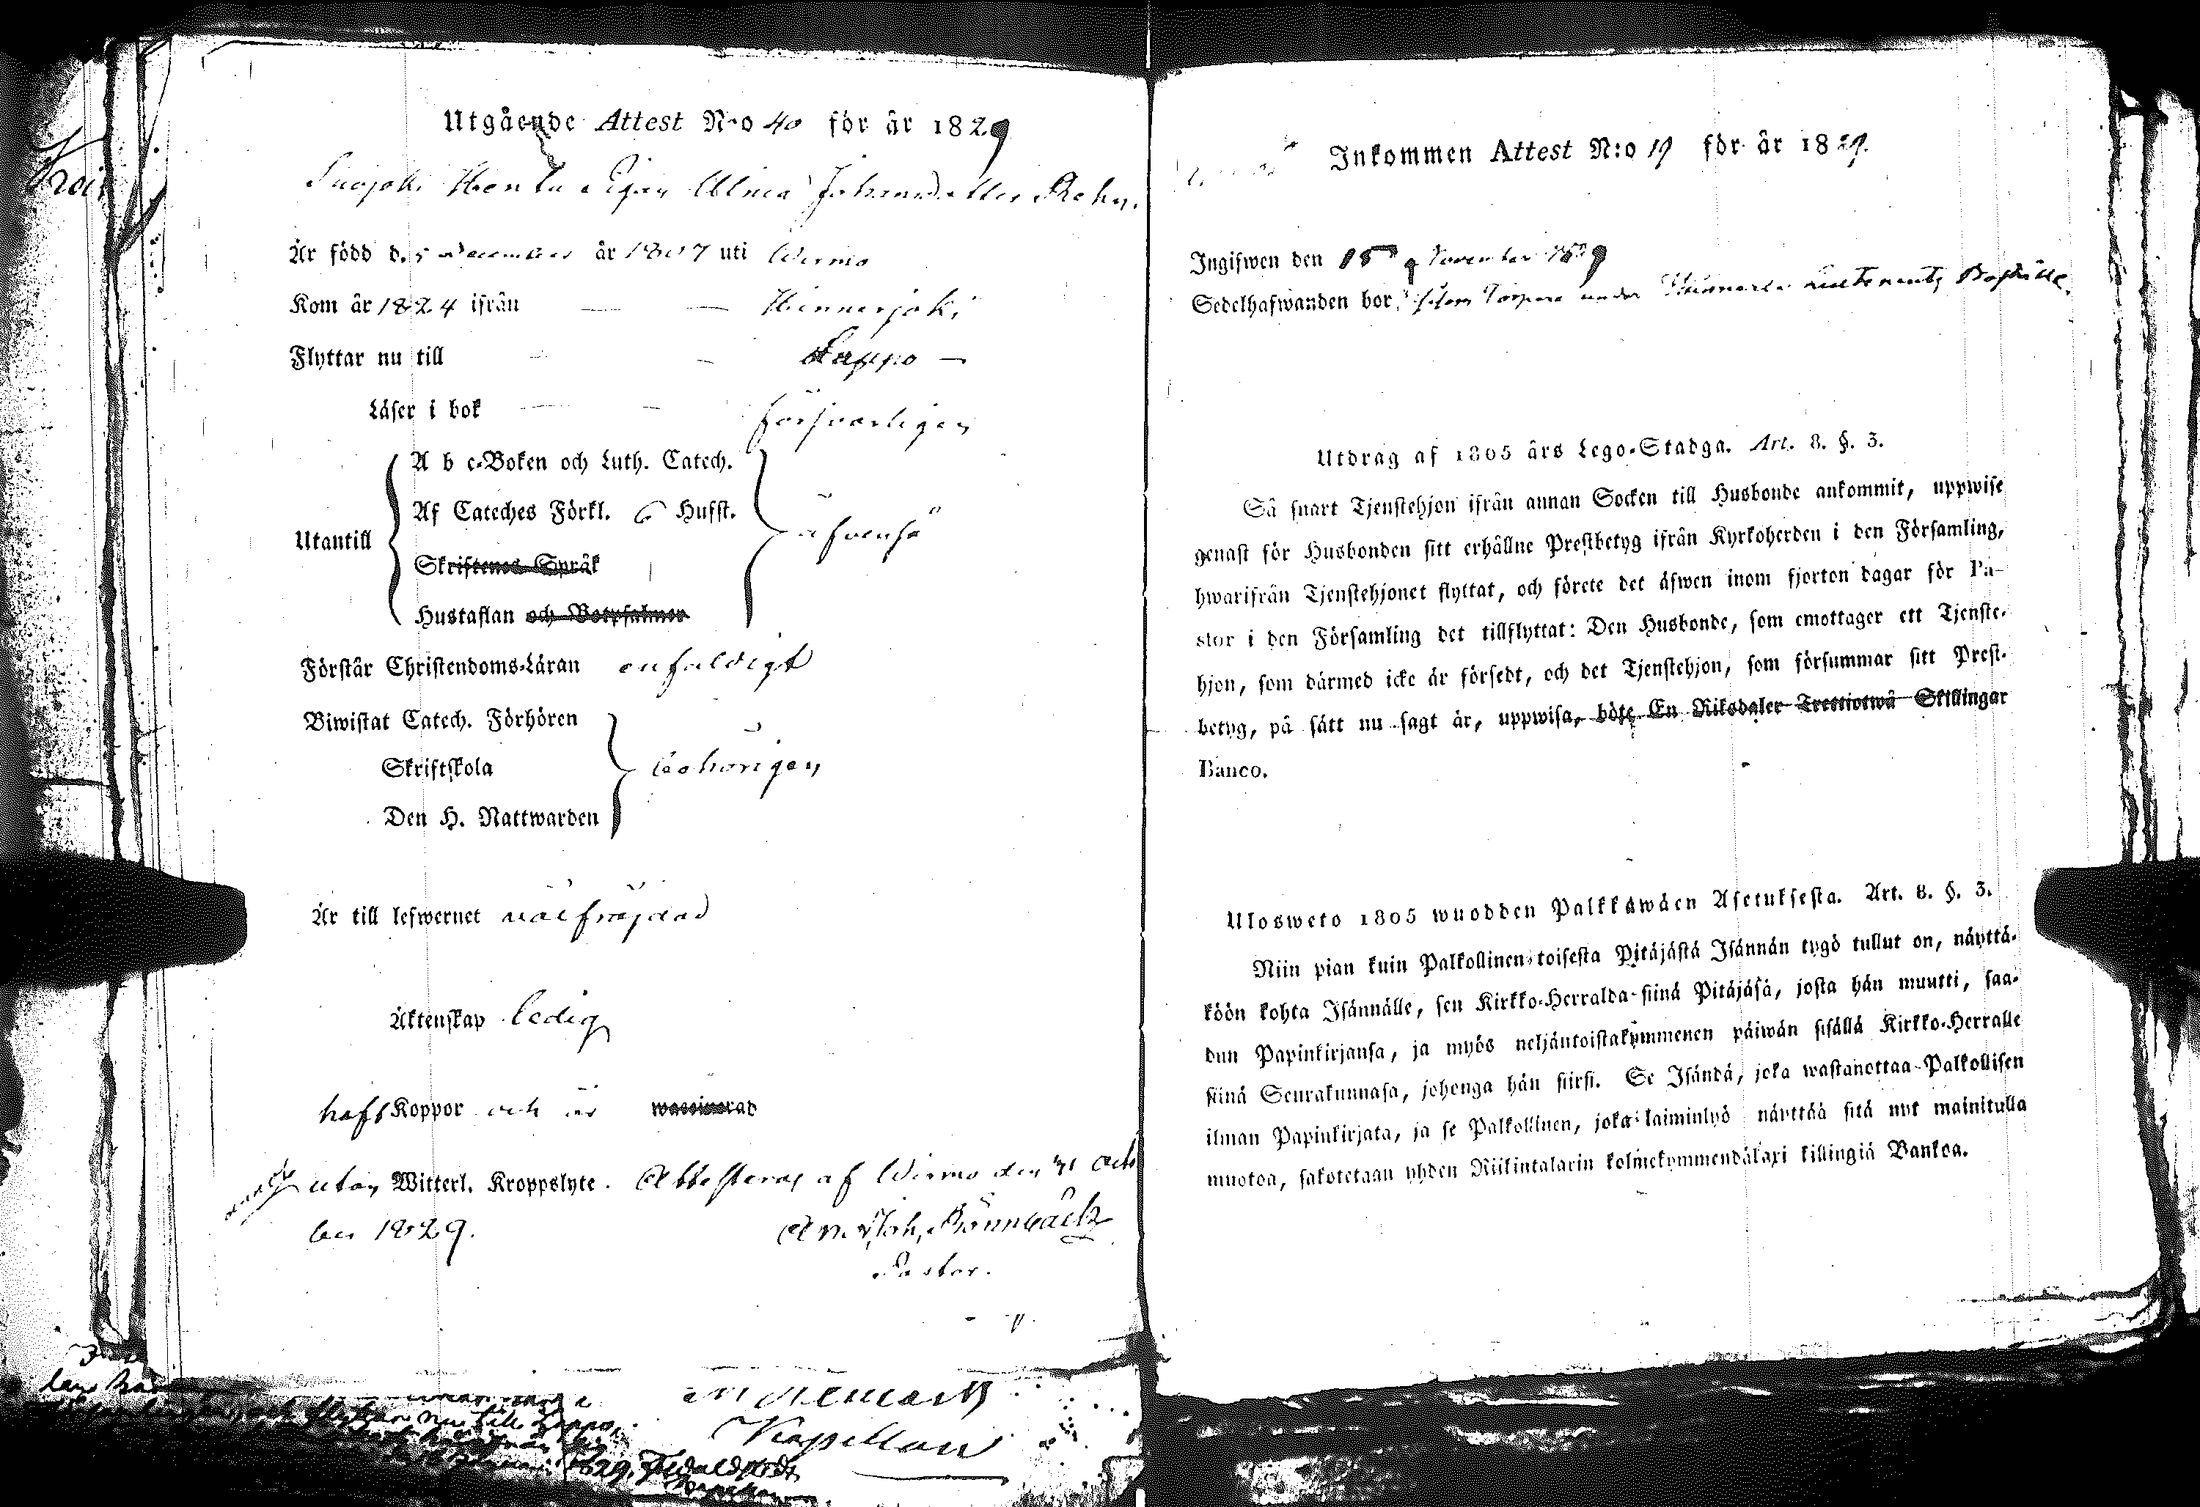 Utgående Attest N:o 40 för år 1829
Suojoki Henta Pigan Ulrica Johansdotter Rehn.
Är född d. 5 December år 1807 uti Wirmo
Kom år 1824 ifrån — — Hinnerjoki
Flyttar nu till - - Lappo —
Läser i bok — - försvarligen
Utantill
A b c-Boken och Luth. Catech.
Af Cateches Förkl. 6 Hufst.
Skriftenes Språk
Hustaflan och Botpsalmer
äfvenså
Förstår Christendoms-Läran enfaldigt
Biwistat Catech. Förhören
Skriftskola
Den H. Nattwarden
behörigen
Är till lefwernet välfräjdad
Äktenskap ledig
haft Koppor och är waccinerad
utan Witterl. Kroppslyte. Attesteras af Wirmo den 31 Octo
ber 1829.
Joh. Brönnback
Pastor.
Kapellan
flyttar nu till Lappo
1829.
Inkommen Attest N:o 19 för år 1829.
Ingifwen den 15 November 1829
Sedelhafwanden bor, såsom Torpare under Boställe.
Utdrag af 1805 års Lego-Stadga. Art. 8. §. 3.
Så snart Tjenstehjon ifrån annan Socken till Husbonde ankommit, uppwise
genast för Husbonden sitt erhållne Prestbetyg ifrån Kyrkoherden i den Församling,
hwarifrån Tjenstehjonet flyttat, och förete det äfwen inom fjorton dagar för Pa-
stor i den Församling det tillflyttat: Den Husbonde, som emottager ett Tjenste-
hjon, som därmed icke är försedt, och det Tjenstehjon, som försummar sitt Prest-
betyg, på sätt nu sagt är, uppwisa, böte En Riksdaler Trettiotwå Skillingar
Banco.
Ulosweto 1805 wuodden Palkkawäen Asetuksesta. Art. 8. §. 3.
Niin pian kuin Palkollinen toisesta Pitäjästä Isännän tygö tullut on, näyttä-
köön kohta Isännälle, sen Kirkko-Herralda siinä Pitäjäsä, josta hän muutti, saa-
dun Papinkirjansa, ja myös neljäntoistakymmenen päiwän sisällä Kirkko-Herralle
siinä Seurakunnasa, johonga hän siirsi. Se Isändä, joka wastanottaa Palkollisen
ilman Papinkirjata, ja se Palkollinen, joka laiminlyö näyttää sitä nyt mainitulla
muotoa, sakotetaan yhden Riikintalarin kolmekymmendäkaxi killingiä Bankoa.